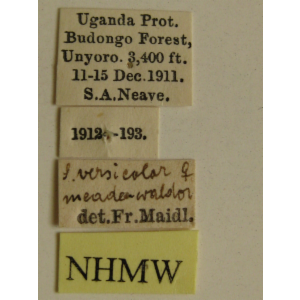 Uganda Prot.
Budongo Forest,
Unyoro. 3,400 ft.
11-15 Dec. 1911.
S.A. Neave.
1912-193.
S. versicolor ♀
meade-waldoi
det. Fr. Maidl.
NHMW